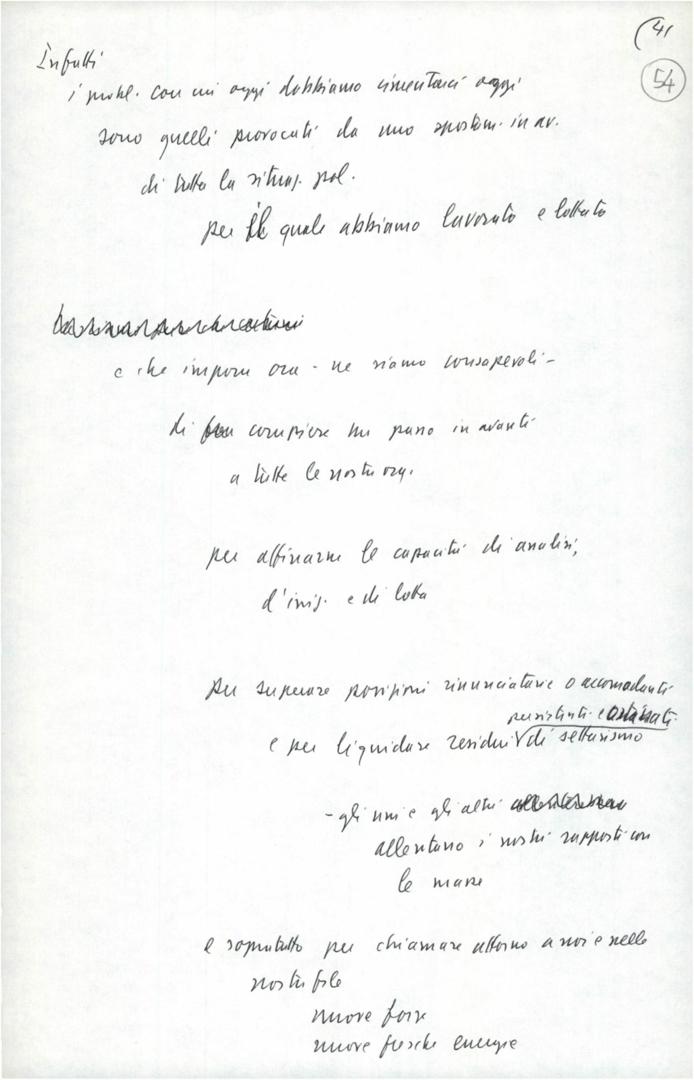 (41
54
Infatti
i probl. con cui oggi dobbiamo cimentarci oggi
sono quelli provocati da uno spostam. in av.
di tutta la situaz. pol.
per il quale abbiamo lavorato e lottato
e che impone ora - ne siamo consapevoli -
di compiere un passo in avanti
a tutte le nostre org.
per affinarne le capacità di analisi,
d'iniz. e di lotta
per superare posizioni rinunciatarie o accomodanti
persistenti e ostinati
e per liquidare residui di settarismo
- gli uni e gli altri
allentano i nostri rapporti con
le masse
e soprattutto per chiamare attorno a noi e nelle
nostre file
nuove forze
nuove fresche energie